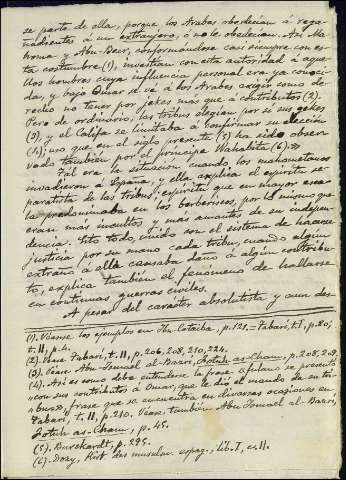 se parte de ellas, porque los Arabes obedecían á rega-
ñadientes á un extranjero, ó no le obedecían. Así Ma-
homa y Abu-Becr, conformándose casi siempre con es-
ta costumbre (1), investían con esta autoridad á aque-
llos hombres cuya influencia personal era ya conoci-
da, y bajo Omar se vé á los Arabes exigir como de-
recho no tener por jefes mas que á contributos (2).
Pero de ordinario, las tribus elegían por sí sus jefes
(3), y el Califa se limitaba á confirmar su elección
(4); uso que en el siglo presente (5) ha sido obser-
vado también por el príncipe Wahabita (6).»
Tál era la situación cuando los mahometanos
invadieron á España, y ella explica el espíritu se-
paratista de las tribus: espíritu que en mayor esca-
la predominaba en los berberiscos, por lo mismo que
eran mas incultos y más amantes de su indepen-
dencia. Esto todo, unido con el sistema de hacerse
justicia por su mano cada tribu, cuando algún
extraño á ella causaba daño á algún contribu-
to, explica también el fenómeno de hallarse
en continuas guerras civiles.
A pesar del carácter absolutista y aun des
(1). Véanse los ejemplos en Ibn Cotaiba, p. 121. - Tabarí, t. I, p. 80;
t. II, p. 4.
(2). Véase Tabarí, t. II, p. 206, 208, 210, 224.
(3). Véase Abu Ismael al-Bazri, Fotuh as-Cham, p. 208, 209.
(4). Así es como debe entenderse la frase
«con sus contributos á Omar, que le dió el mando de su tri-
bu», frase que se encuentra en diversas ocasiones en
Tabarí, t. II, p. 210. Véase también Abu Ismael al-Bazri,
Fotuh as-Cham, p. 45.
(5). Burckhardt, p. 295.
(6). Dozy, Hist. des musulm. espag., lib. I, c. II.